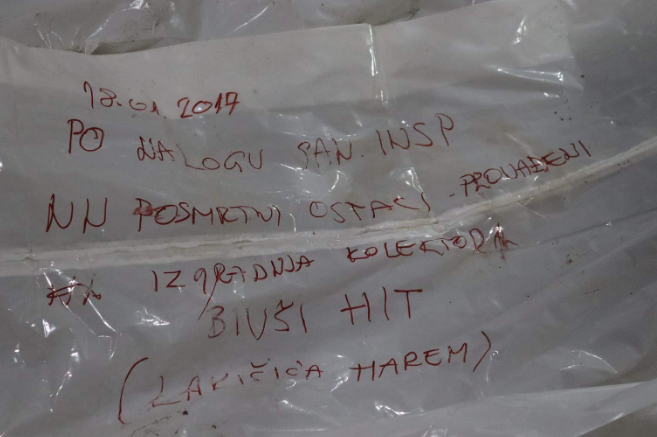 18.01.2017
PO NALOGU SAN. INSP
NN POSMRTNI OSTACI PRONAĐENI
IZGRADNJA KOLEKTORA
BIVŠI HIT
(LAKIŠIĆA HAREM)